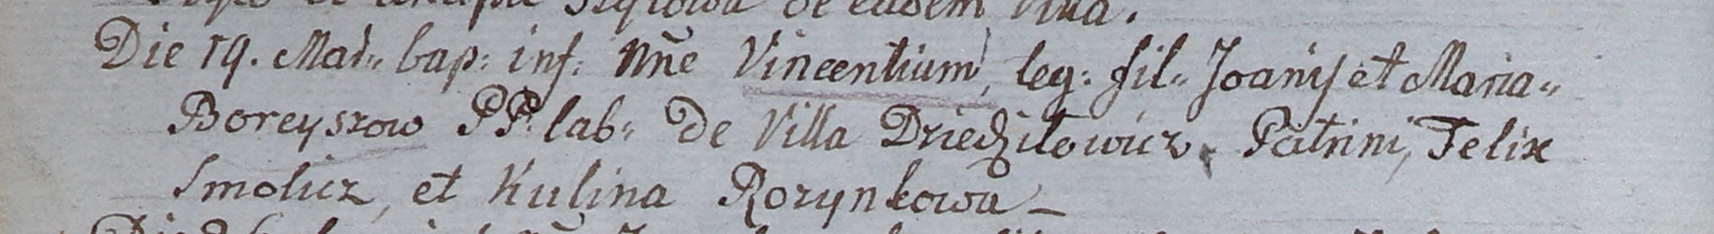 de eadem Villa.
Die 19. Mai„ bap: inf: Nn̄e Vincentium, leg: fil„ Joan̄ij et Maria„
Boreyszow PP: lab„ De Villa Dziedziłowicz. Patrini, Felix
Smolicz, et Kulina Rozynkowa –